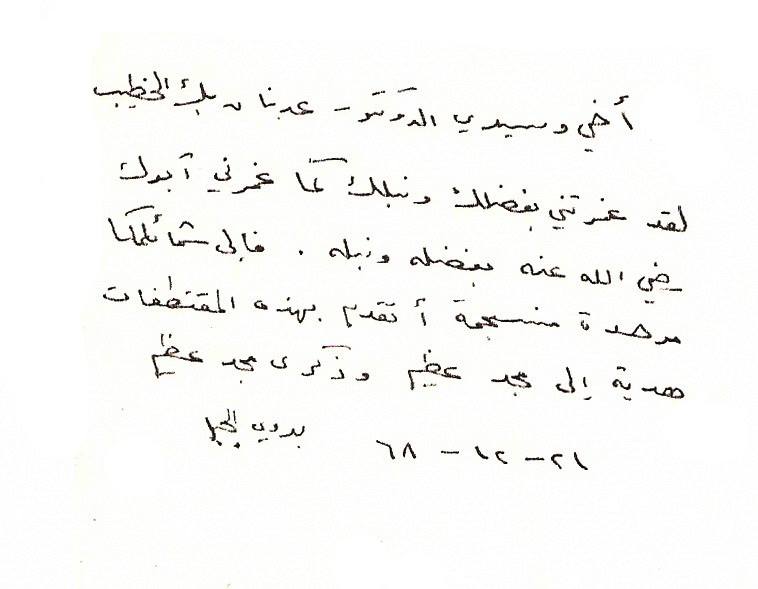 أخي وسيدي الدكتور عدنان بك الخطيب
لقد غمرتني بفضلك ونبلك كما غمرني أبوك
رضي الله عنه بفضله ونبله . فإلى شمائلكما
موحدة منسجمة أتقدم بهذه المقتطفات
هدية إلى مجد عظيم وذكرى مجد عظيم
بدوي الجبل
٢١ - ١٢ - ٦٨